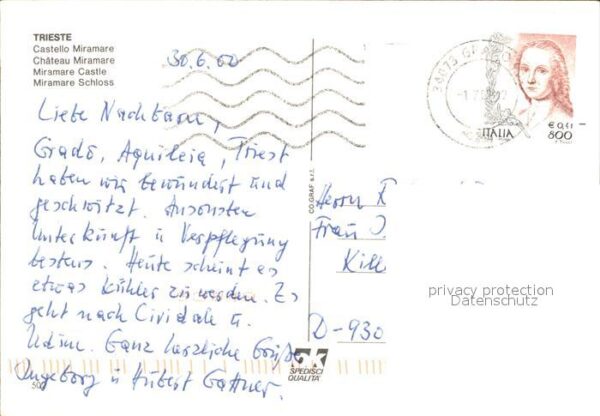 TRIESTE
Castello Miramare
Château Miramare
Miramare Castle
Miramare Schloss
30.6.02
Liebe Nachbarn,
Grado, Aquileia, Triest
haben wir bewundert und
geschwitzt. Ansonsten
Unterkunft u. Verpflegung
bestens. Heute scheint es
etwas kühler zu werden. Es
geht nach Cividale u.
Udine. Ganz herzliche Grüße
Ingeborg u. Hubert
50
CO.GRAF s.r.l.
SPEDISCI
QUALITÀ
ITALIA
€ 0,41
800
Herrn
Frau
Kill
D-930
privacy protection
Datenschutz